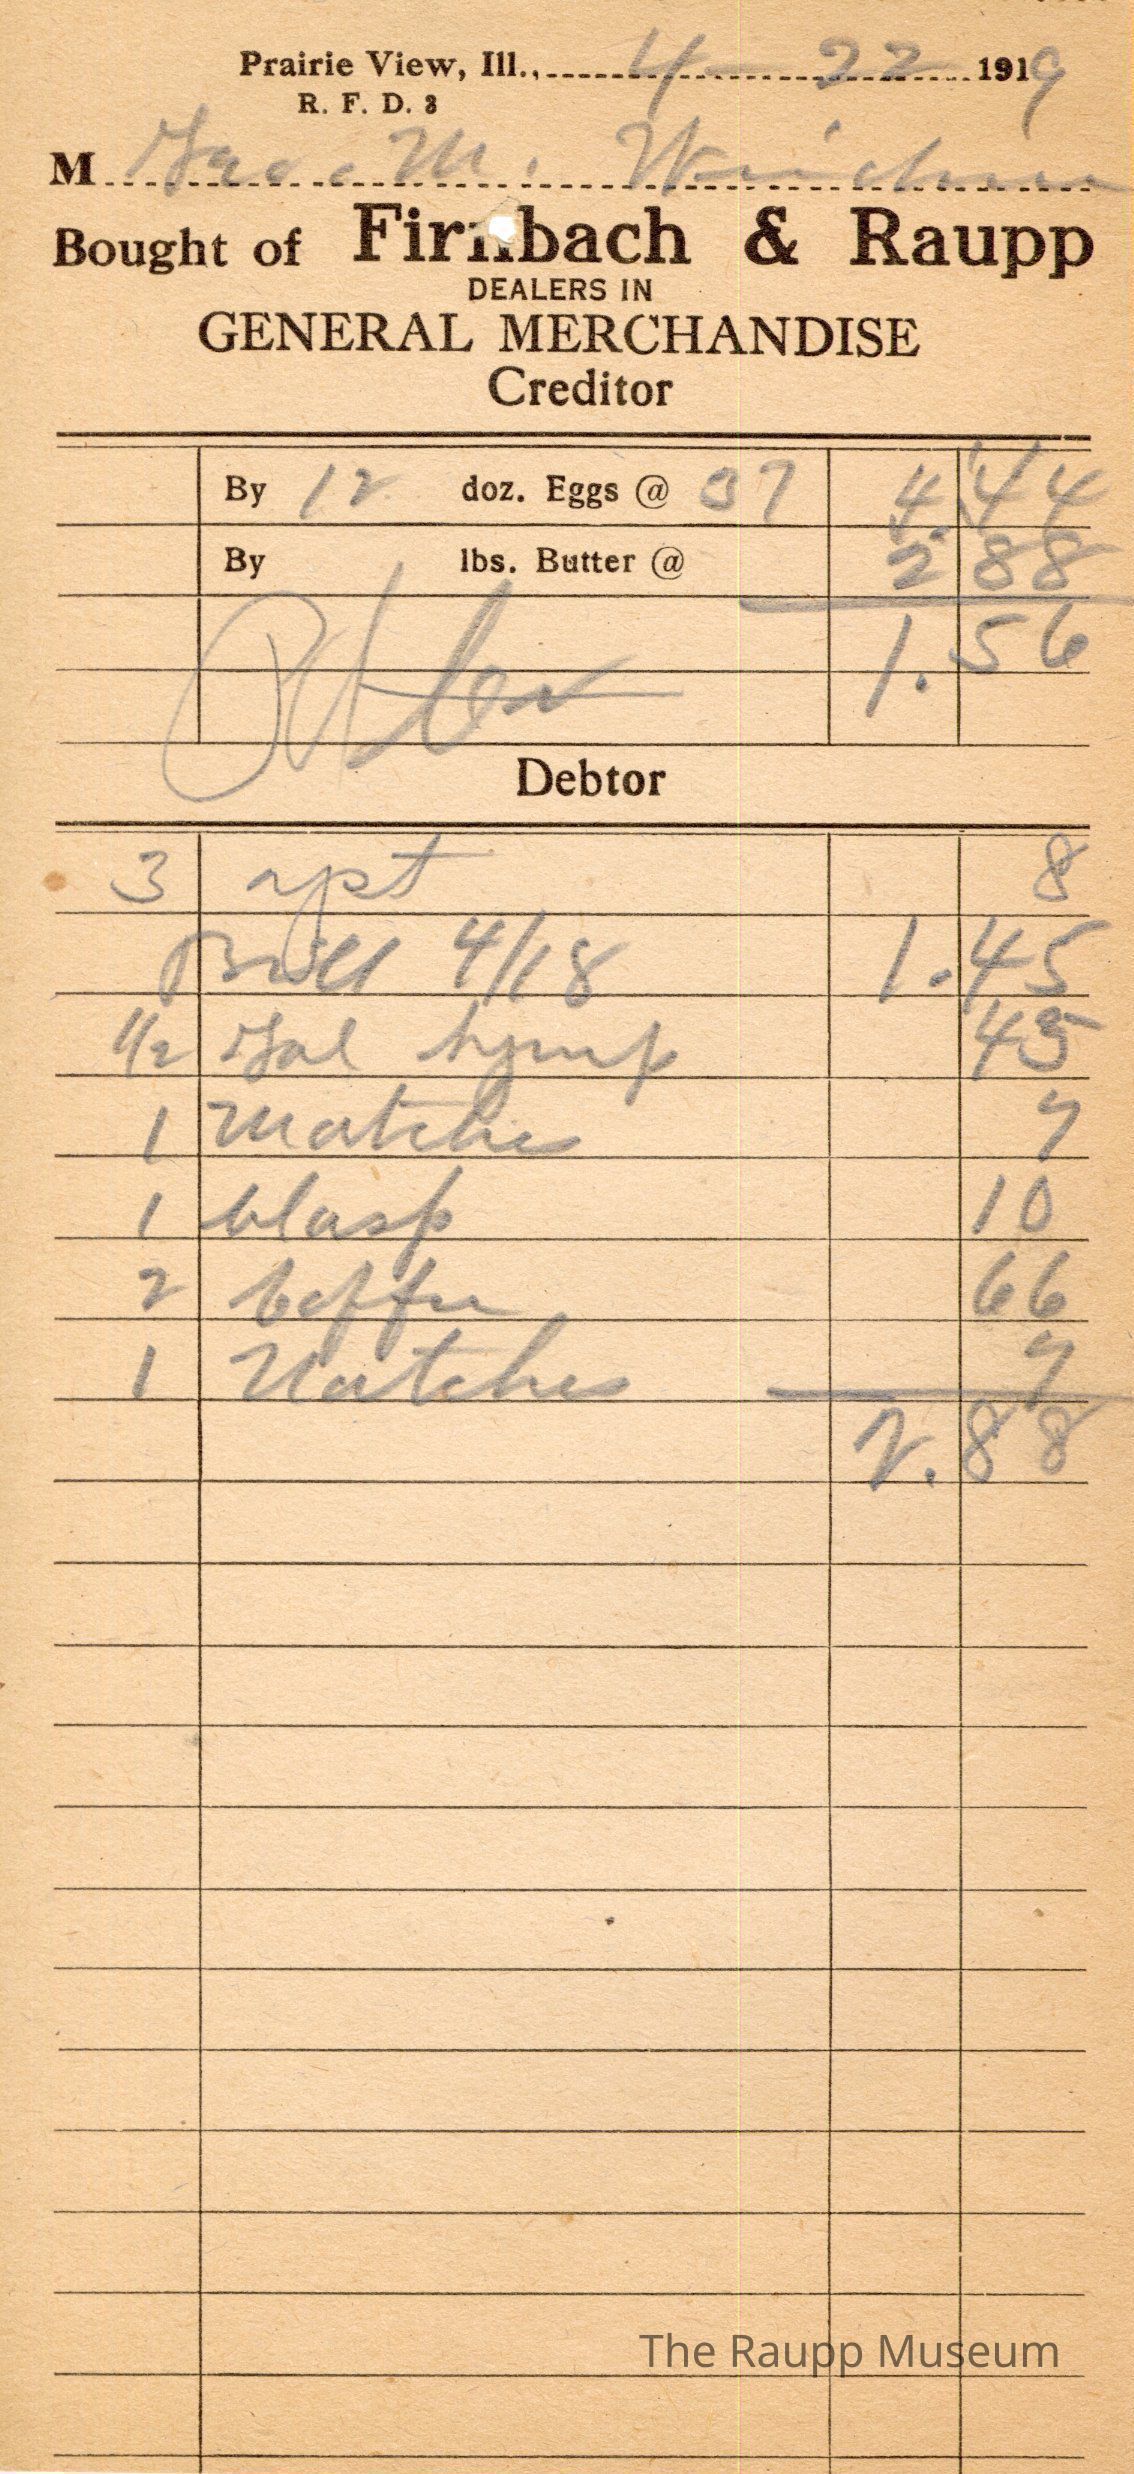 Prairie View, Ill., 4-22 1919
R. F. D. 3
M Geo. M. Weidner
Bought of Firnbach & Raupp
DEALERS IN
GENERAL MERCHANDISE
Creditor
By 12 doz. Eggs @ 37 4.44
By lbs. Butter @ 2 88
1.56
Debtor
3 8
Bill 4/18 1.45
1/2 Gal 45
1 Matches 7
1 10
2 Coffee 66
1 Matches 7
2.88
The Raupp Museum